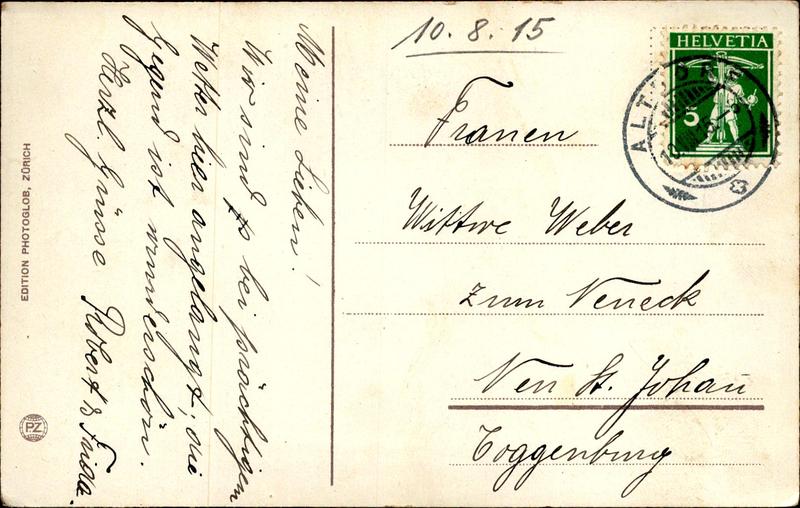 10. 8. 15
HELVETIA
5
ALTDORF
Meine Lieben!
Wir sind ts bei prächtigem
Wetter hier angelangt; die
Gegend ist wunderschön.
Herzl. Grüsse Robert & Frieda.
Frauen
Wittwe Weber
zum Neneck
Neu St. Johann
Toggenburg
EDITION PHOTOGLOB, ZÜRICH
PZ